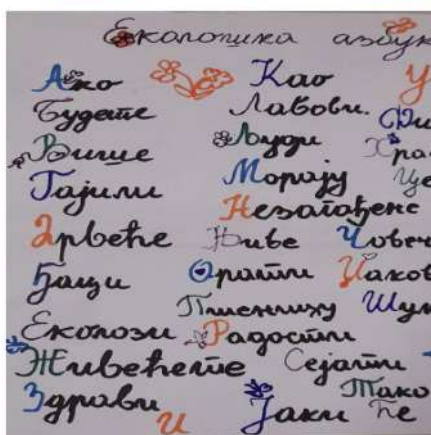 Еколошка азбук
Ако
Будете
Више
Гајили
Дрвеће
Ђаци
Еколози
Живећете
Здрави
И
Јаки
Као
Лавови.
Људи
Морају
Незагађене
Њиве
Орати
Пшеницу
Радости
Сејати
Тако
Ће
У
Хра
Це
Човеч
Џаков
Шум